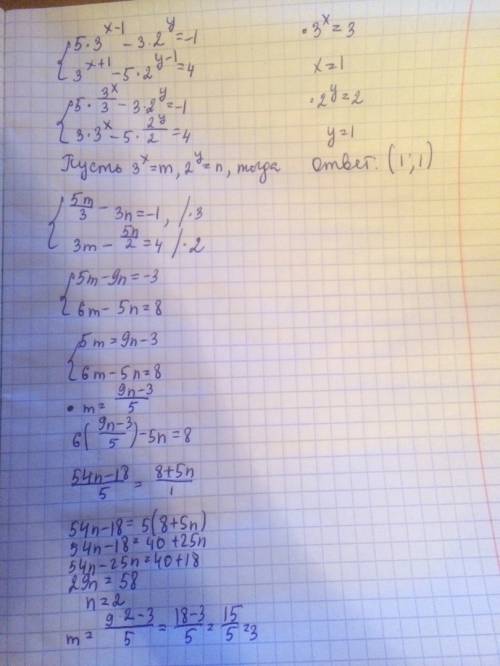 5·3^(x-1) - 3·2^y = -1
3^(x+1) - 5·2^(y-1) = 4
5·3^x/3 - 3·2^y = -1
3·3^x - 5·2^y/2 = 4
Пусть 3^x = m, 2^y = n, тогда
5m/3 - 3n = -1, /·3
3m - 5n/2 = 4 /·2
5m - 9n = -3
6m - 5n = 8
5m = 9n - 3
6m - 5n = 8
• m = (9n-3)/5
6((9n-3)/5) - 5n = 8
(54n-18)/5 = (8+5n)/1
54n - 18 = 5(8+5n)
54n - 18 = 40 + 25n
54n - 25n = 40 + 18
29n = 58
n = 2
m = (9·2-3)/5 = (18-3)/5 = 15/5 = 3
• 3^x = 3
x = 1
• 2^y = 2
y = 1
Ответ: (1; 1)